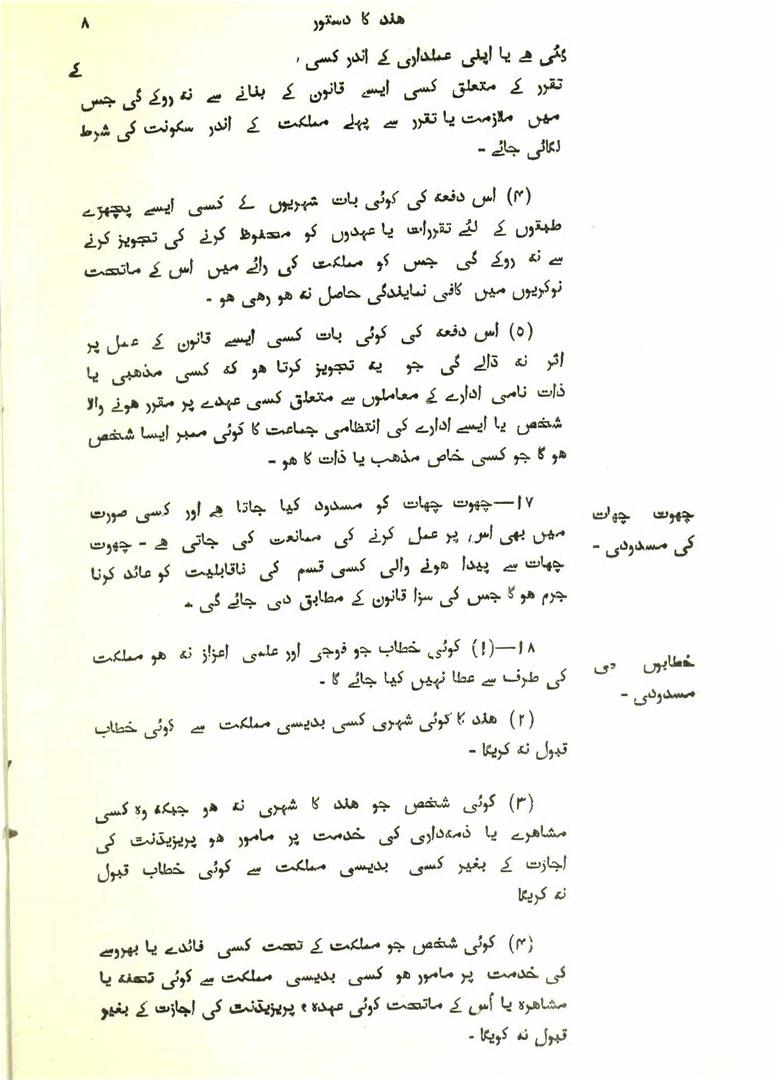 ۸
ھند کا دستور
گئی ھے یا اپنی عملداری کے اندر کسی کے
تقرر کے متعلق کسی ایسے قانون کے بنانے سے نہ روکے گی جس
میں ملازمت یا تقرر سے پہلے مملکت کے اندر سکونت کی شرط
لگائی جائے -
(۴) اس دفعہ کی کوئی بات شہریوں کے کسی ایسے پچھڑے
طبقوں کے لئے تقررات یا عہدوں کو محفوظ کرنے کی تجویز کرنے
سے نہ روکے گی جس کو مملکت کی رائے میں اس کے ماتحت
نوکریوں میں کافی نمایندگی حاصل نہ ھو رھی ھو -
(۵) اس دفعہ کی کوئی بات کسی ایسے قانون کے عمل پر
اثر نہ ڈالے گی جو یہ تجویز کرتا ھو کہ کسی مذھبی یا
ذات نامی ادارے کے معاملوں سے متعلق کسی عہدے پر مقرر ھونے والا
شخص یا ایسے ادارے کی انتظامی جماعت کا کوئی ممبر ایسا شخص
ھو گا جو کسی خاص مذھب یا ذات کا ھو -
چھوت چھات
کی مسدودی -
۱۷—چھوت چھات کو مسدود کیا جاتا ھے اور کسی صورت
میں بھی اس پر عمل کرنے کی ممانعت کی جاتی ھے - چھوت
چھات سے پیدا ھونے والی کسی قسم کی ناقابلیت کو عائد کرنا
جرم ھو گا جس کی سزا قانون کے مطابق دی جائے گی -
خطابوں دی
مسدودی -
۱۸—(۱) کوئی خطاب جو فوجی اور علمی اعزاز نہ ھو مملکت
کی طرف سے عطا نہیں کیا جائے گا -
(۲) ھند کا کوئی شہری کسی بدیسی مملکت سے کوئی خطاب
قبول نہ کریگا -
(۳) کوئی شخص جو ھند کا شہری نہ ھو جبکہ وہ کسی
مشاھرے یا ذمہ داری کی خدمت پر مامور ھو پریزیڈنٹ کی
اجازت کے بغیر کسی بدیسی مملکت سے کوئی خطاب قبول
نہ کریگا
(۴) کوئی شخص جو مملکت کے تحت کسی فائدے یا بھروسے
کی خدمت پر مامور ھو کسی بدیسی مملکت سے کوئی تحفہ یا
مشاھرہ یا اُس کے ماتحت کوئی عہدہ ، پریزیڈنٹ کی اجازت کے بغیر
قبول نہ کویگا -